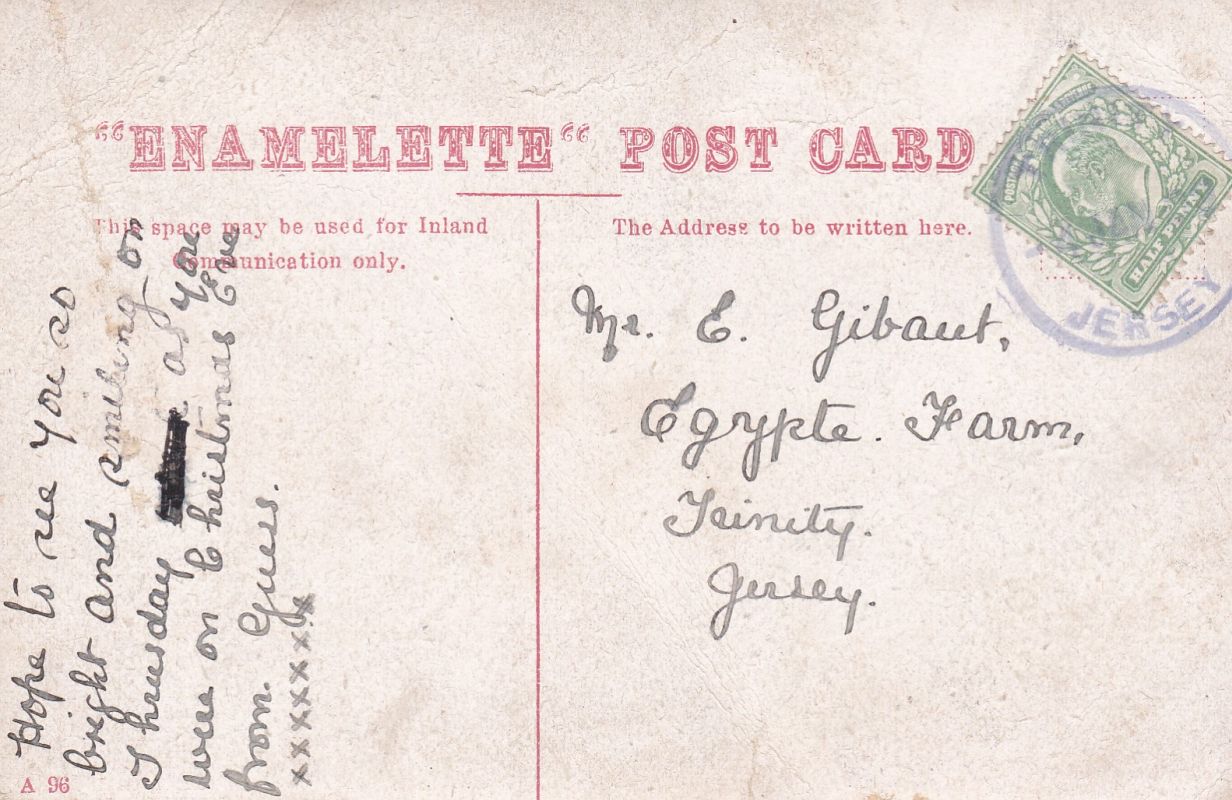 "ENAMELETTE" POST CARD
This space may be used for Inland
Communication only.
The Address to be written here.
Hope to see you so
bright and smiling on
Thursday as you
were on Christmas Eve
from. Guess.
xxxxxxxx
Mr. E. Gibaut,
Egypte. Farm,
Trinity.
Jersey.
HALF PENNY
JERSEY
A 96